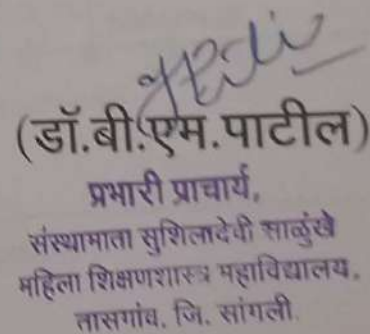 (डॉ.बी.एम.पाटील)
प्रभारी प्राचार्य,
संस्थामाता सुशिलादेवी साळुंखे
महिला शिक्षणशास्त्र महाविद्यालय,
तासगांव, जि. सांगली.